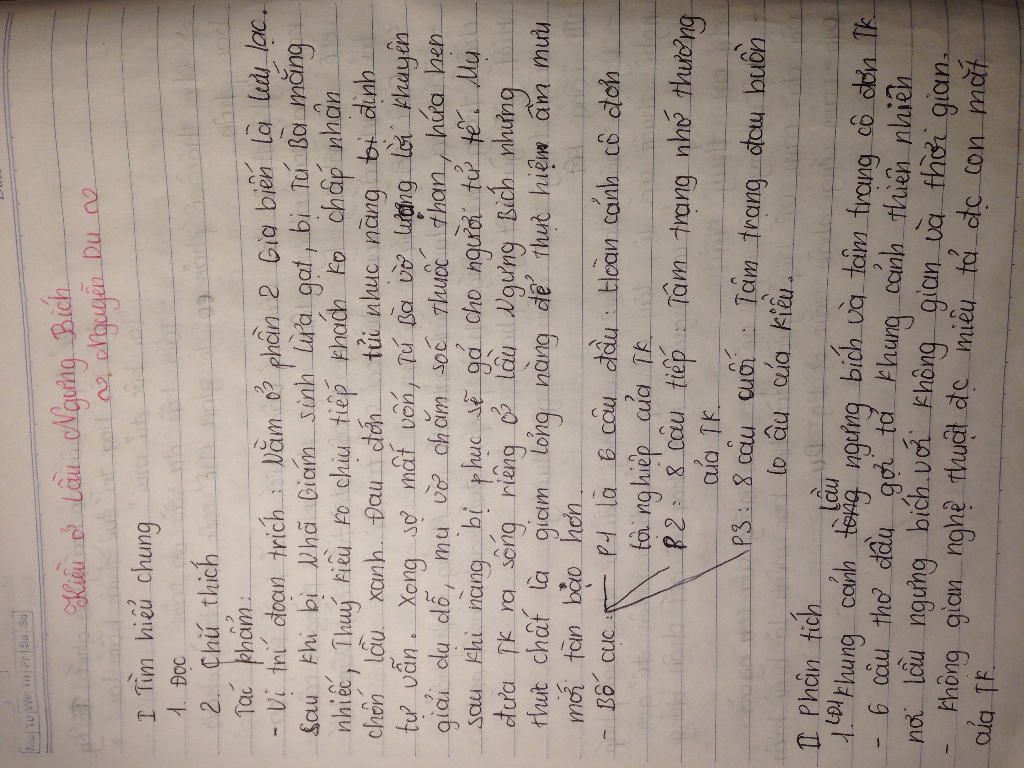 Kiều ở lầu Ngưng Bích
~ Nguyễn Du ~
I Tìm hiểu chung
1. Đọc
2. Chú thích
Tác phẩm:
- Vị trí đoạn trích: Nằm ở phần 2 Gia biến là lưu lạc.
Sau khi bị Mã Giám Sinh lừa gạt, bị Tú Bà mắng
nhiếc, Thuý Kiều ko chịu tiếp khách ko chấp nhận
chốn lầu xanh. Đau đớn tủi nhục nàng định
tự vẫn. Xong sợ mất vốn, Tú Bà vờ lời khuyên
giải dụ dỗ, mụ vờ chăm sóc thuốc thang, hứa hẹn
sau khi nàng bị phục sẽ gả cho người tử tế. Mụ
đưa TK ra sống riêng ở lầu Ngưng Bích nhưng
thực chất là giam lỏng nàng để thực hiện âm mưu
mới tàn bạo hơn.
- Bố cục: P1 là 6 câu đầu: Hoàn cảnh cô đơn
tội nghiệp của TK
P2: 8 câu tiếp: Tâm trạng nhớ thương
của TK.
P3: 8 câu cuối: Tâm trạng đau buồn
lo âu của Kiều.
II Phân tích
1. Khung cảnh lầu ngưng bích và tâm trạng cô đơn TK
- 6 câu thơ đầu gợi tả khung cảnh thiên nhiên
nơi lầu ngưng bích với không gian và thời gian.
- Không gian nghệ thuật đc miêu tả đc con mắt
của TK